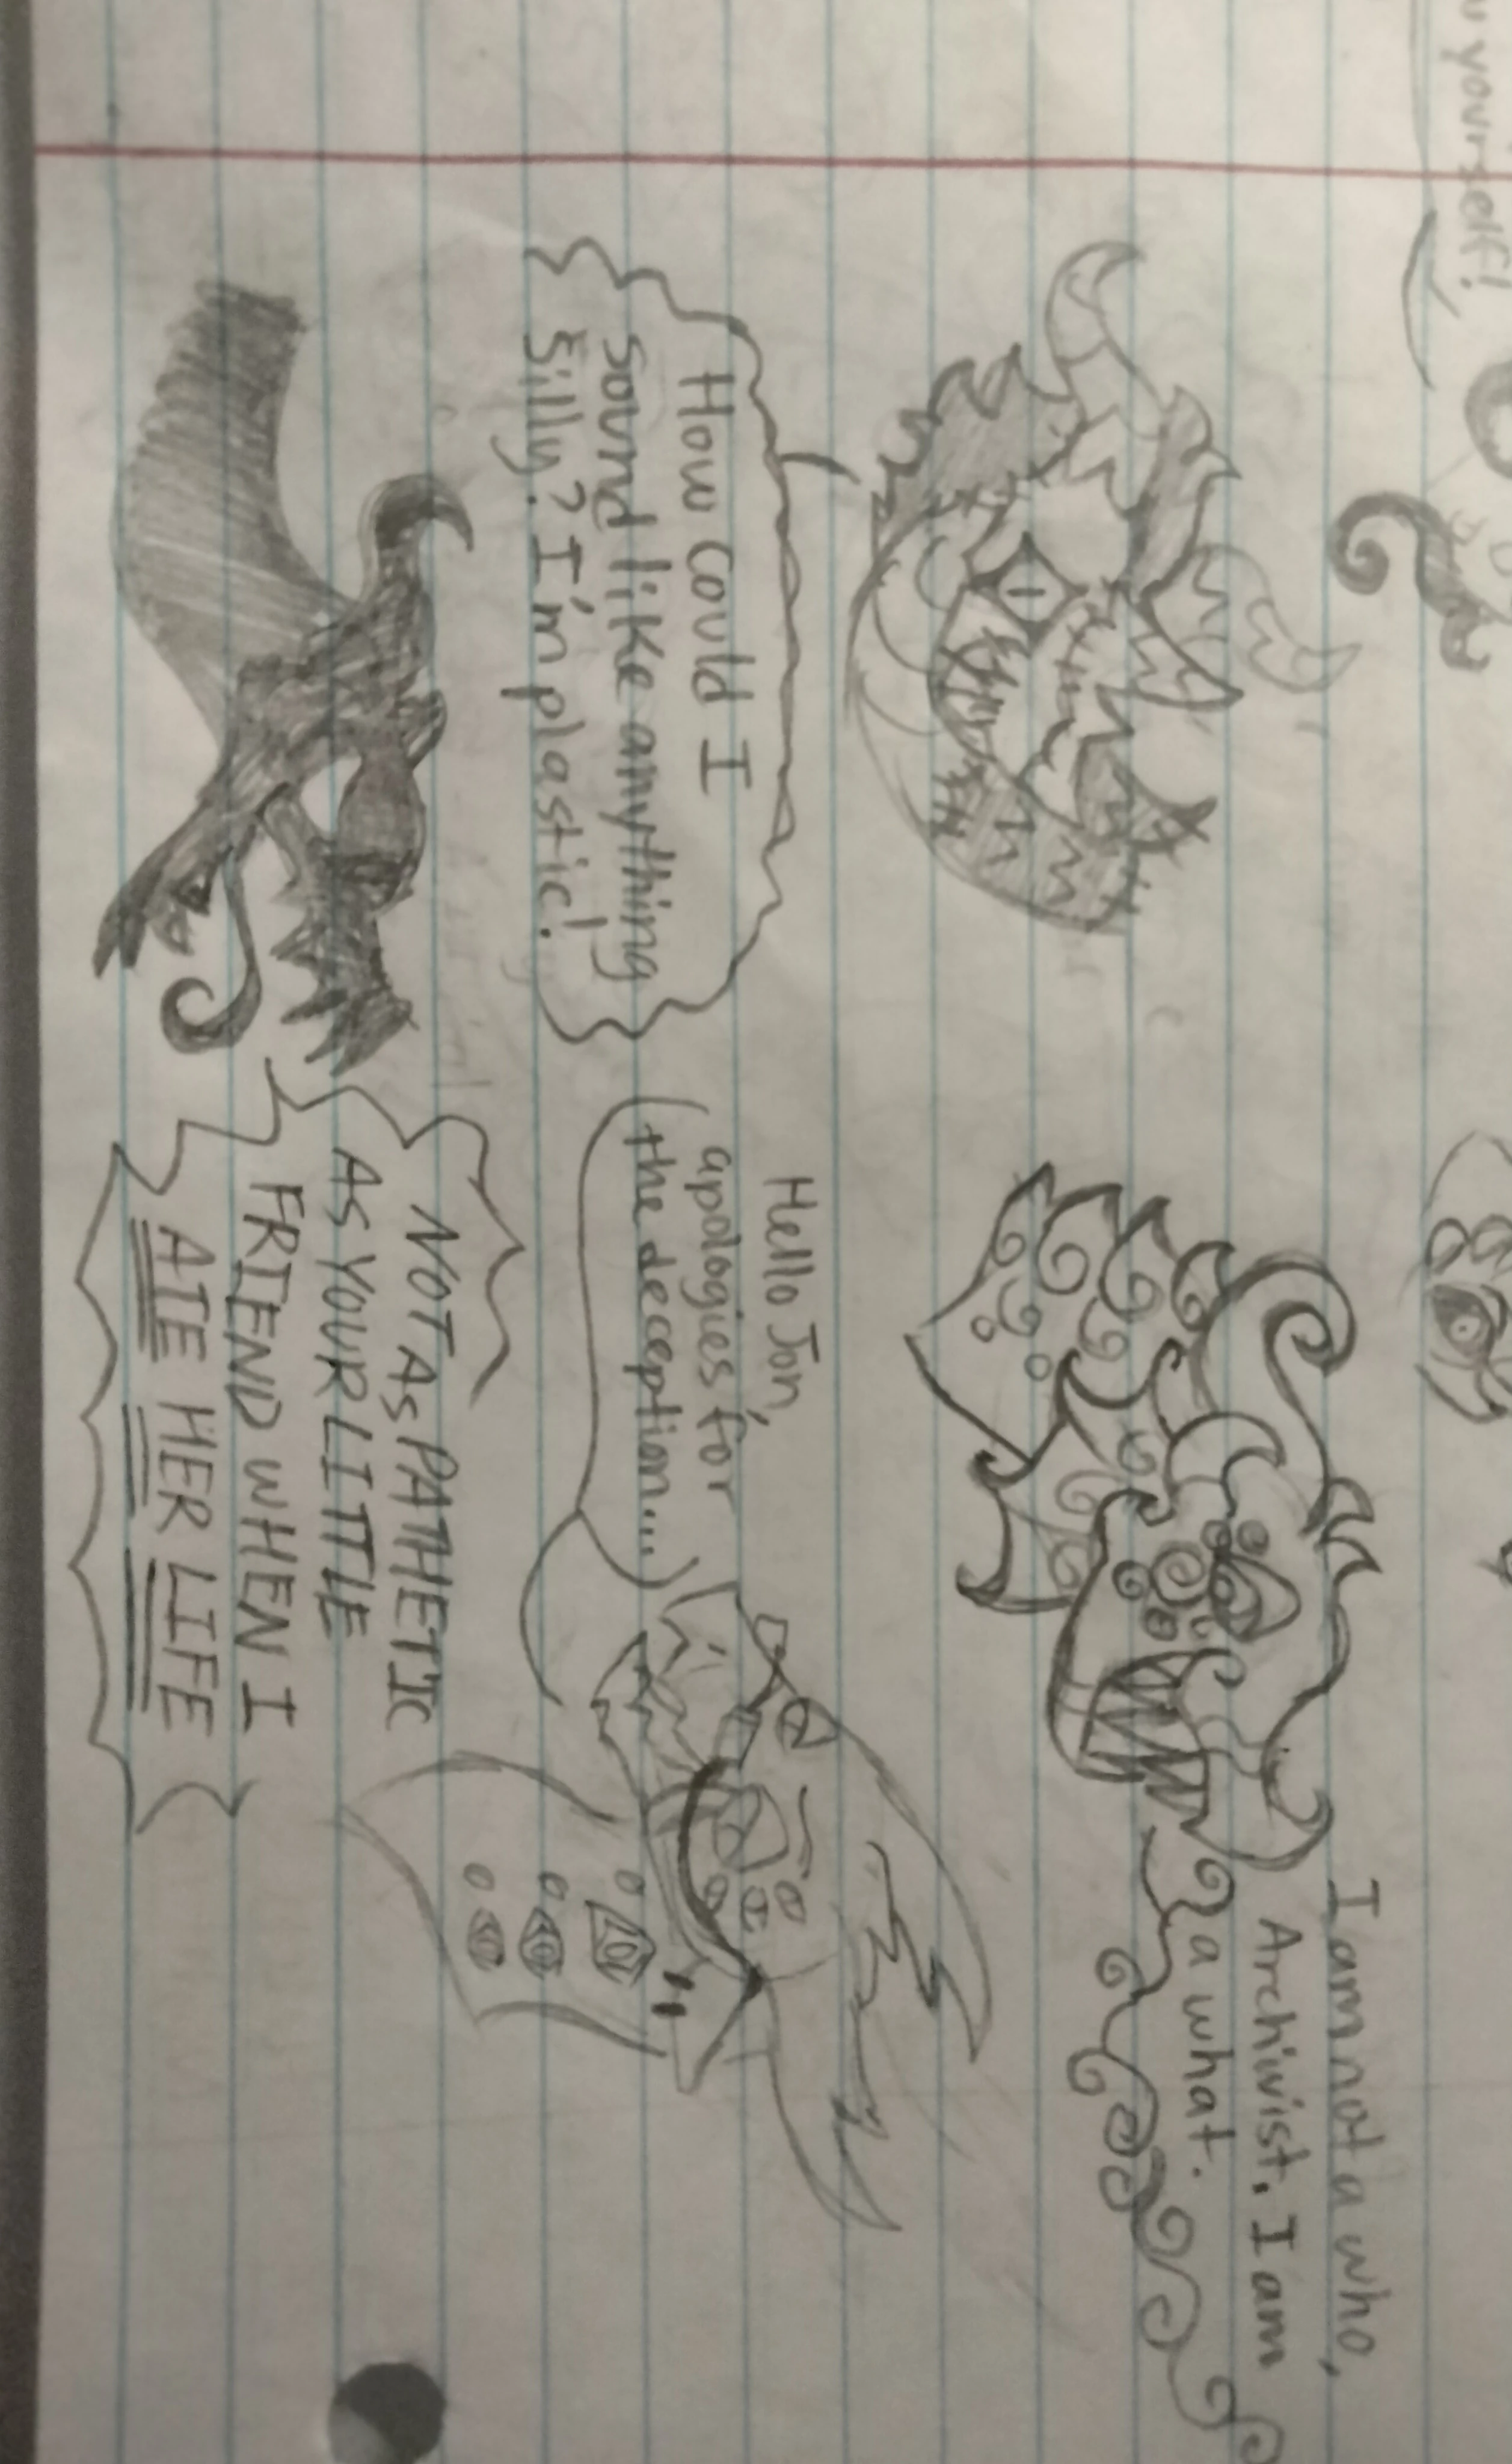 yourself!
I am not a who,
Archivist. I am
a what.
How could I
sound like anything
silly? I'm plastic!
Hello Jon,
apologies for
the deception...
NOT AS PATHETIC
AS YOUR LITTLE
FRIEND WHEN I
ATE HER LIFE